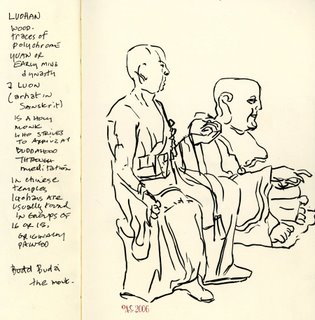 LUOHAN
WOOD.
traces of
polychrome
YUAN OR
EARLY MING
dynasty
A LUON
(arhat in
SANSKRIT)
IS A HOLY
MONK
WHO STRIVES
TO ARRIVE AT
BUDDAHOOD
THROUGH
meditation
IN Chinese
Temples
luohans ARE
USUALLY found
IN GROUPS OF
16 OR 18.
ORIGINALLY
PAINTED
Budai
the monk.
2006